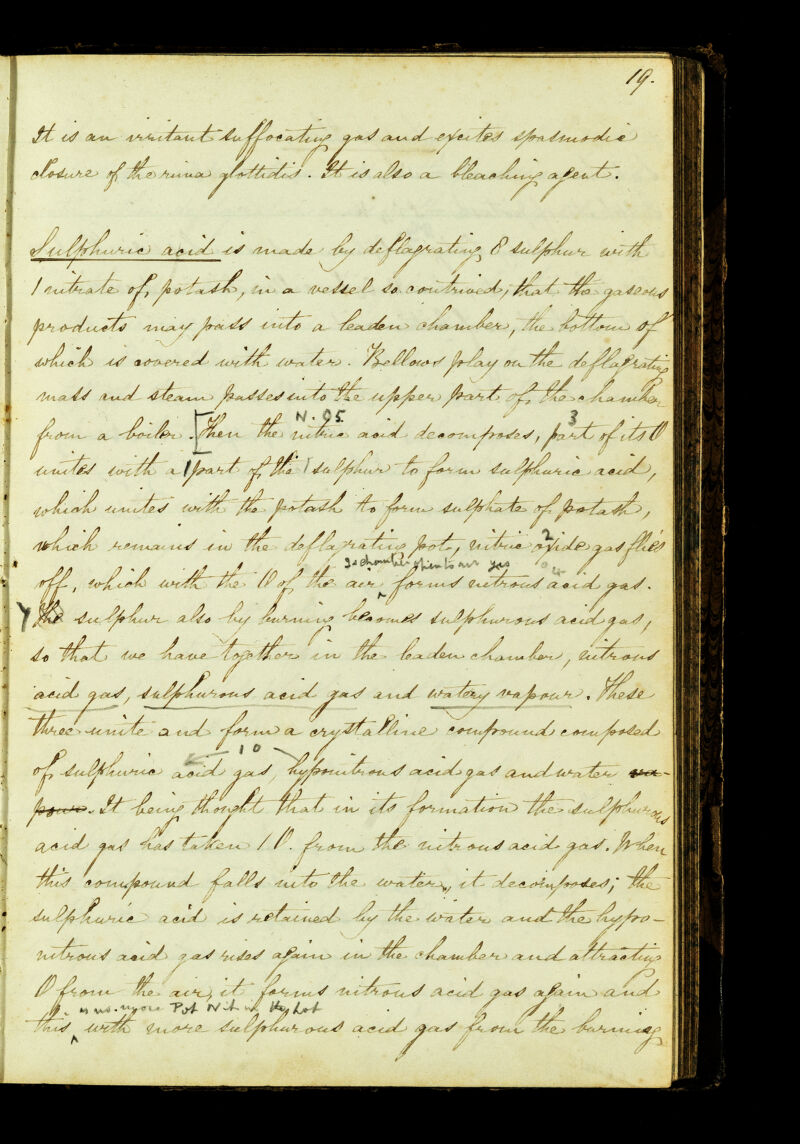 19.
It is an irritant suffocating gas and excites spasmodic
closure of the rima glottidis. It is also a bleaching agent.
Sulphuric acid is made by deflagrating 8 sulphur with
1 nitrate of potash, in a vessel so contrived, that the gaseous
products may pass into a leaden chamber, the bottom of
which is covered with water. Bellows play on the deflagrating
mass and steam passes into the upper part of the chamber
N. O5. 3
from a boiler. [Then the nitric acid decomposes, part of its O
unites with a 1 part of the 1 sulphur to form sulphuric acid,
which unites with the potash to form sulphate of potash,
2
which remains in the deflagrating pot, nitric oxide gas flies
chamber open to air O4
off, which with the O of the air ^ forms nitrous acid gas.
The sulphur also by burning becomes sulphurous acid gas,
so that we have together in the leaden chamber, nitrous
acid gas, sulphurous acid gas and watery vapour. These
three unite and form a crystalline compound composed
1 O
of sulphuric acid gas, hyponitrous acid gas and water va-
pour. It being thought that in its formation the sulphurous
acid gas has taken 1 O. from the nitrous acid gas. When
this compound falls into the water, it decomposes; the
sulphuric acid is retained by the water and the hypo-
nitrous acid gas rises again in the chamber and attracting
O from the air, it forms nitrous acid gas again and
no more Pot Nit
this ^ with more sulphurous acid gas from the burning